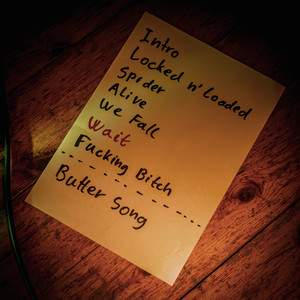 Intro
Locked n' Loaded
Spider
Alive
We Fall
Wait
Fucking Bitch
Butter Song